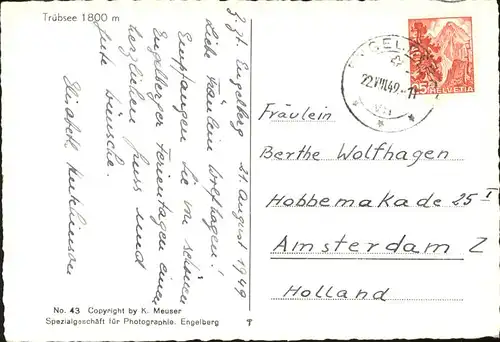 Trübsee 1800 m
z. Zt. Engelberg 21. August 1949
Liebe Fräulein Wolfhagen!
Empfangen Sie von schönen
Engelberger Ferientagen einen
herzlichen Gruss und
gute Wünsche.
Elisabeth
ENGELBERG
22.VIII.49.-11
25 HELVETIA
Fräulein
Berthe Wolfhagen
Hobbemakade 25 I
Amsterdam Z
Holland
No. 43 Copyright by K. Meuser
Spezialgeschäft für Photographie, Engelberg